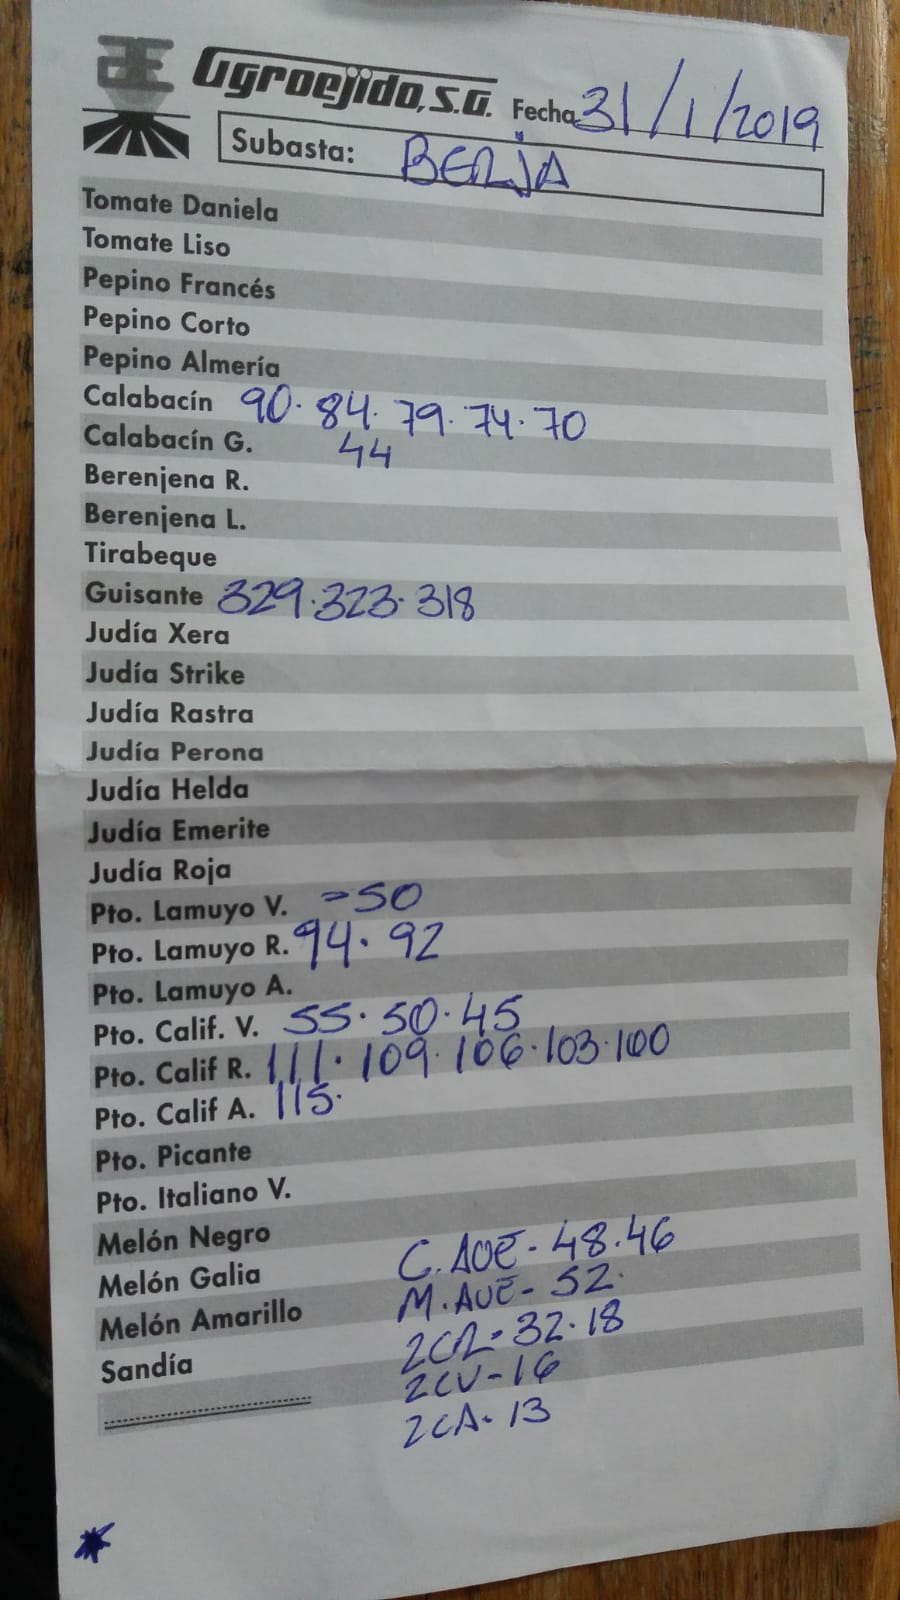 Agroejido, S.G. Fecha 31/1/2019
Subasta: BERJA
Tomate Daniela
Tomate Liso
Pepino Francés
Pepino Corto
Pepino Almería
Calabacín 90. 84. 79. 74. 70
Calabacín G. 44
Berenjena R.
Berenjena L.
Tirabeque
Guisante 329. 323. 318
Judía Xera
Judía Strike
Judía Rastra
Judía Perona
Judía Helda
Judía Emerite
Judía Roja
Pto. Lamuyo V. - 50
Pto. Lamuyo R. 94. 92
Pto. Lamuyo A.
Pto. Calif. V. 55. 50. 45
Pto. Calif R. 111. 109. 106. 103. 100
Pto. Calif A. 115.
Pto. Picante
Pto. Italiano V.
Melón Negro
Melón Galia
Melón Amarillo
Sandía
C. AUE - 48. 46
M. AUE - 52.
2CR - 32. 18
2CV - 16
2CA - 13